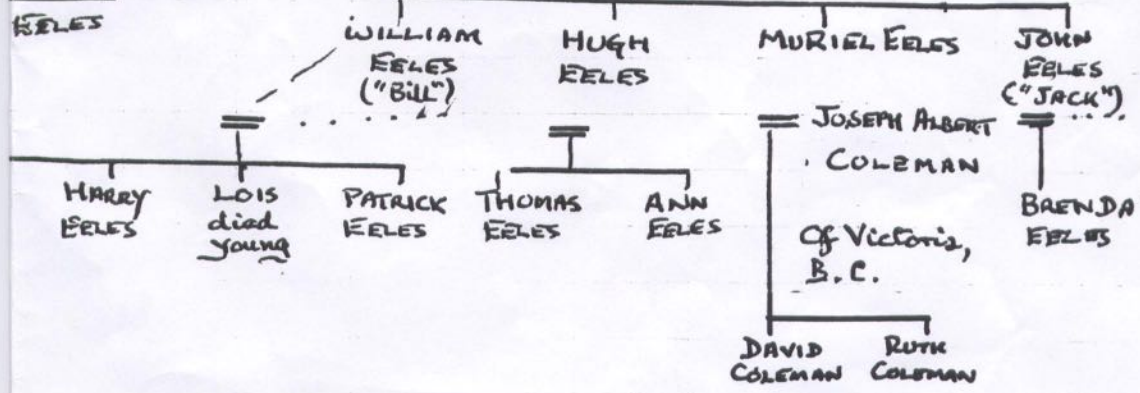 EELES
WILLIAM
EELES
("Bill")
HUGH
EELES
MURIEL EELES
JOHN
EELES
("JACK")
JOSEPH ALBERT
COLEMAN
HARRY
EELES
LOIS
died
young
PATRICK
EELES
THOMAS
EELES
ANN
EELES
Of Victoria,
B.C.
BRENDA
EELES
DAVID
COLEMAN
RUTH
COLEMAN